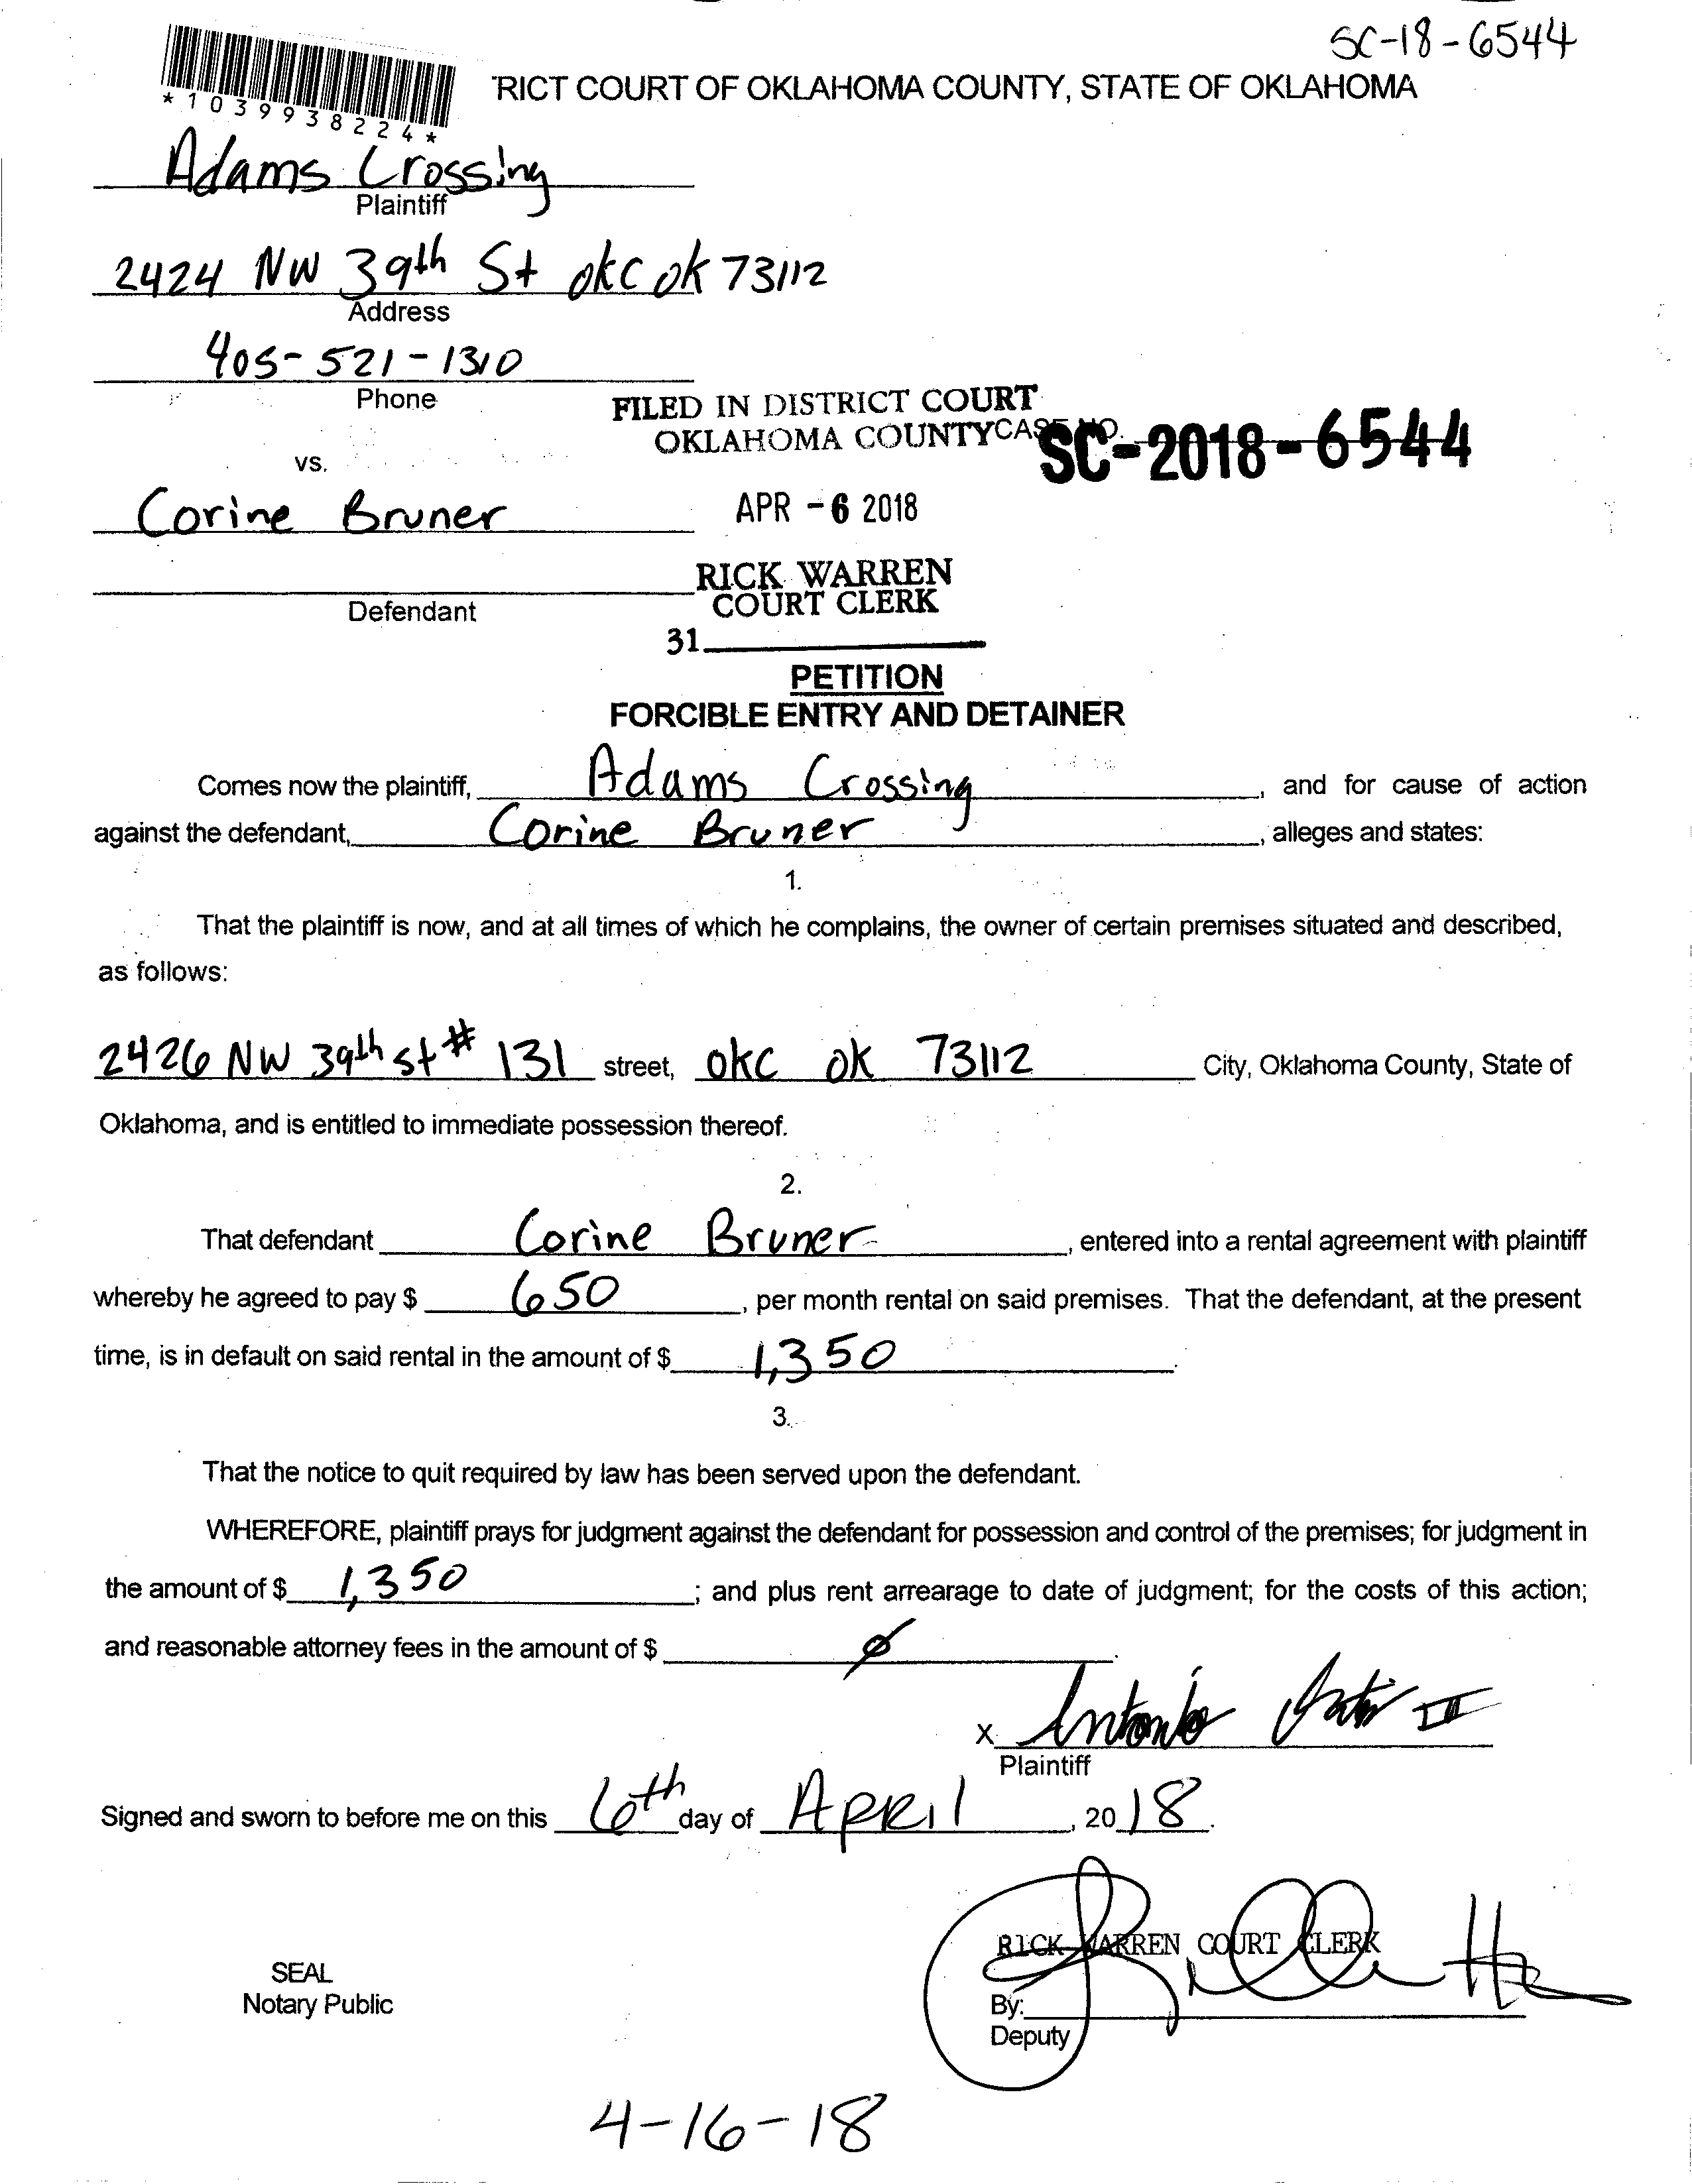 SC-18-6544
*1039938224*
RICT COURT OF OKLAHOMA COUNTY, STATE OF OKLAHOMA
Adams Crossing
Plaintiff
2424 NW 39th St okc ok 73112
Address
405-521-1310
Phone
FILED IN DISTRICT COURT
OKLAHOMA COUNTY CASE NO. SC-2018-6544
vs.
Corine Bruner
APR -6 2018
RICK WARREN
COURT CLERK
Defendant
31
PETITION
FORCIBLE ENTRY AND DETAINER
Comes now the plaintiff, Adams Crossing, and for cause of action
against the defendant, Corine Bruner, alleges and states:
1.
That the plaintiff is now, and at all times of which he complains, the owner of certain premises situated and described,
as follows:
2426 NW 39th st # 131 street, okc ok 73112 City, Oklahoma County, State of
Oklahoma, and is entitled to immediate possession thereof.
2.
That defendant Corine Bruner, entered into a rental agreement with plaintiff
whereby he agreed to pay $ 650, per month rental on said premises. That the defendant, at the present
time, is in default on said rental in the amount of $ 1,350.
3.
That the notice to quit required by law has been served upon the defendant.
WHEREFORE, plaintiff prays for judgment against the defendant for possession and control of the premises; for judgment in
the amount of $ 1,350; and plus rent arrearage to date of judgment; for the costs of this action;
and reasonable attorney fees in the amount of $ ø.
X Antonio III
Plaintiff
Signed and sworn to before me on this 6th day of April, 2018.
RICK WARREN COURT CLERK
SEAL
Notary Public
By:
Deputy
4-16-18